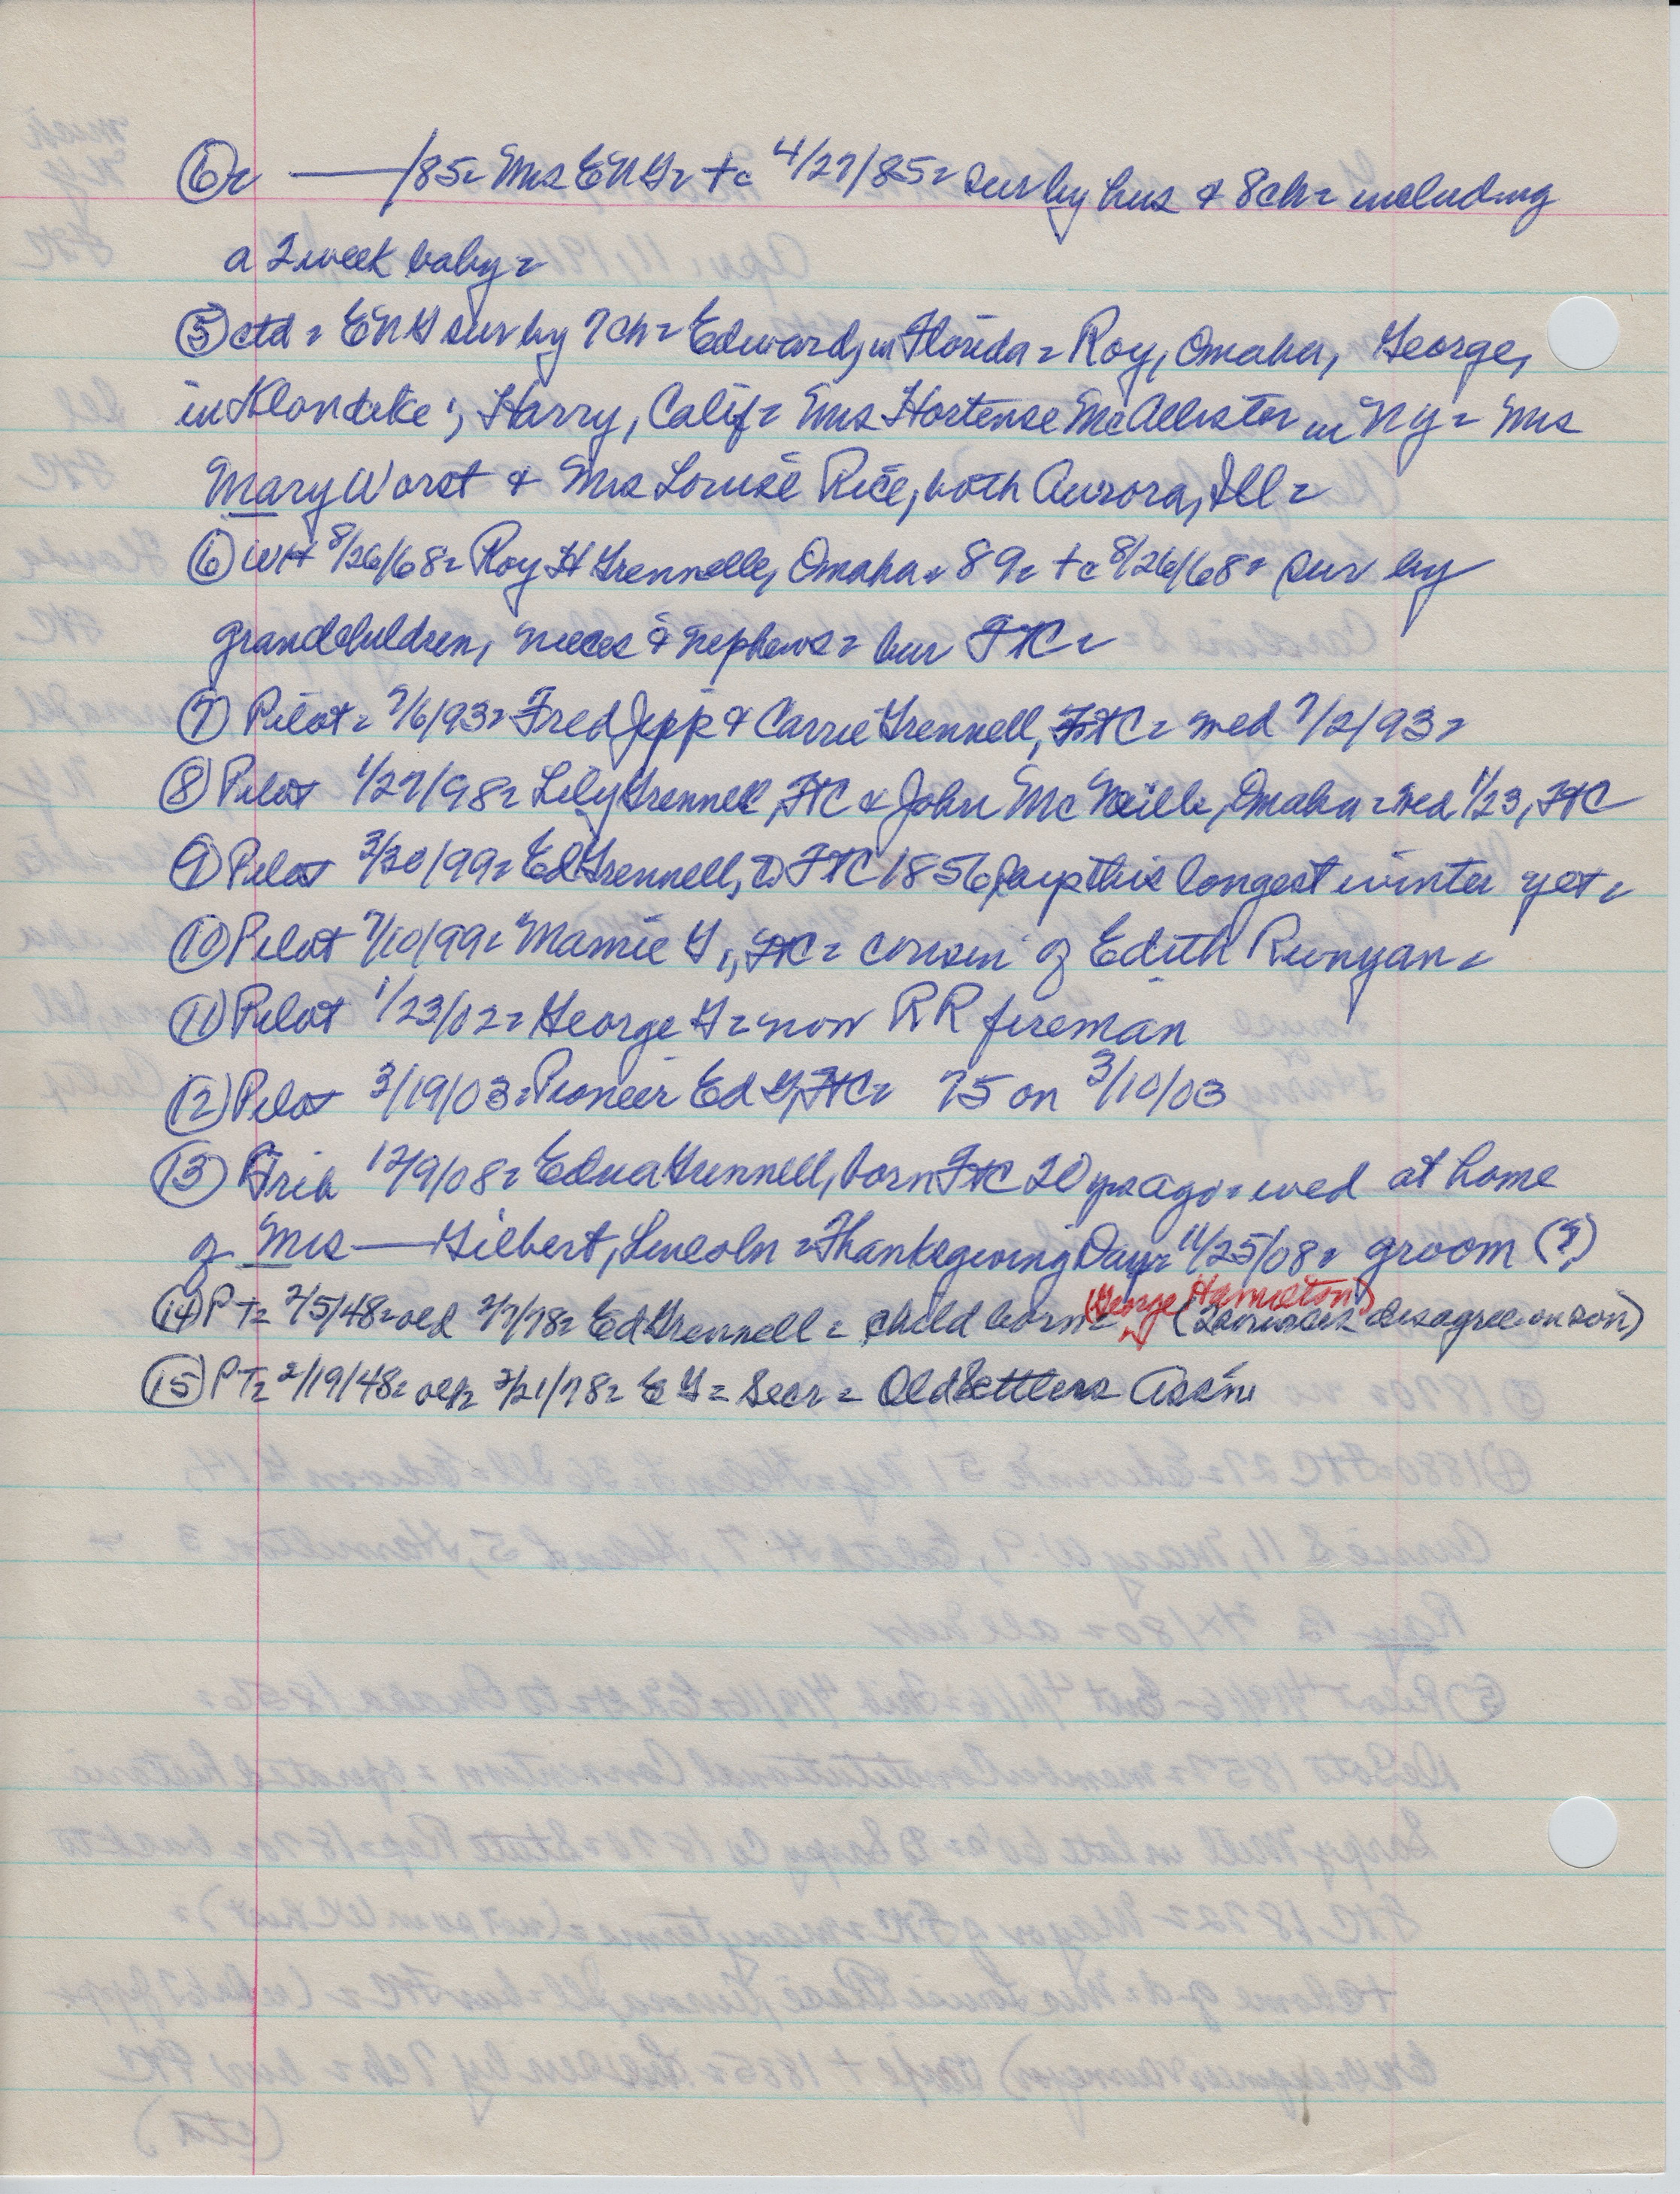 ⑥= ——/85= Mrs ENG= †c 4/27/85= sur by hus & 8ch= including
a 2 week baby=
⑤ ctd= ENG sur by 7ch= Edward, in Florida= Roy, Omaha, George,
in Klondike; Harry, Calif= Mrs Hortense McAllister in NY= Mrs
Mary Worst & Mrs Louise Rice, both Aurora, Ill=
⑥ WH 8/26/68= Roy H Grennelle, Omaha= 89= †c 8/26/68= sur by
grandchildren, nieces & nephews= bur FTC=
⑦ Pilot= 7/6/93= Fred Jipp & Carrie Grennell, FTC= wed 7/2/93=
⑧ Pilot 1/27/98= Lily Grennell, FTC & John McNeill, Omaha= wed 1/23, FTC
⑨ Pilot 3/30/99= Ed Grennell, FTC 1856, says this longest winter yet=
⑩ Pilot 7/10/99= Mamie G, FTC= cousin of Edith Runyan=
⑪ Pilot 1/23/02= George G= now RR fireman
⑫ Pilot 3/19/03= Pioneer Ed G, FTC= 75 on 3/10/03
⑬ Trib 12/9/08= Edna Grennell, born FTC 20 yrs ago= wed at home
of Mrs —— Gilbert, Lincoln= Thanksgiving Day= 11/25/08= groom (?)
(George Hamilton)
⑭ PT= 2/5/48= old 2/7/78= Ed Grennell= child born= (2 sources disagree on son)
⑮ PT= 2/19/48= old= 2/21/78= EG= Secr= Old Settlers Ass'n